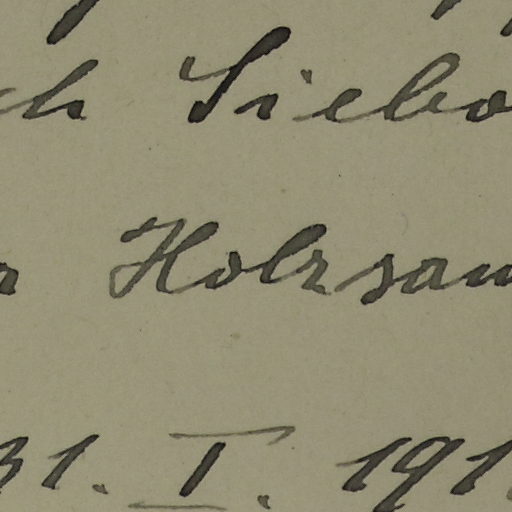 ch Siebo
r Holzsam
31. I. 191